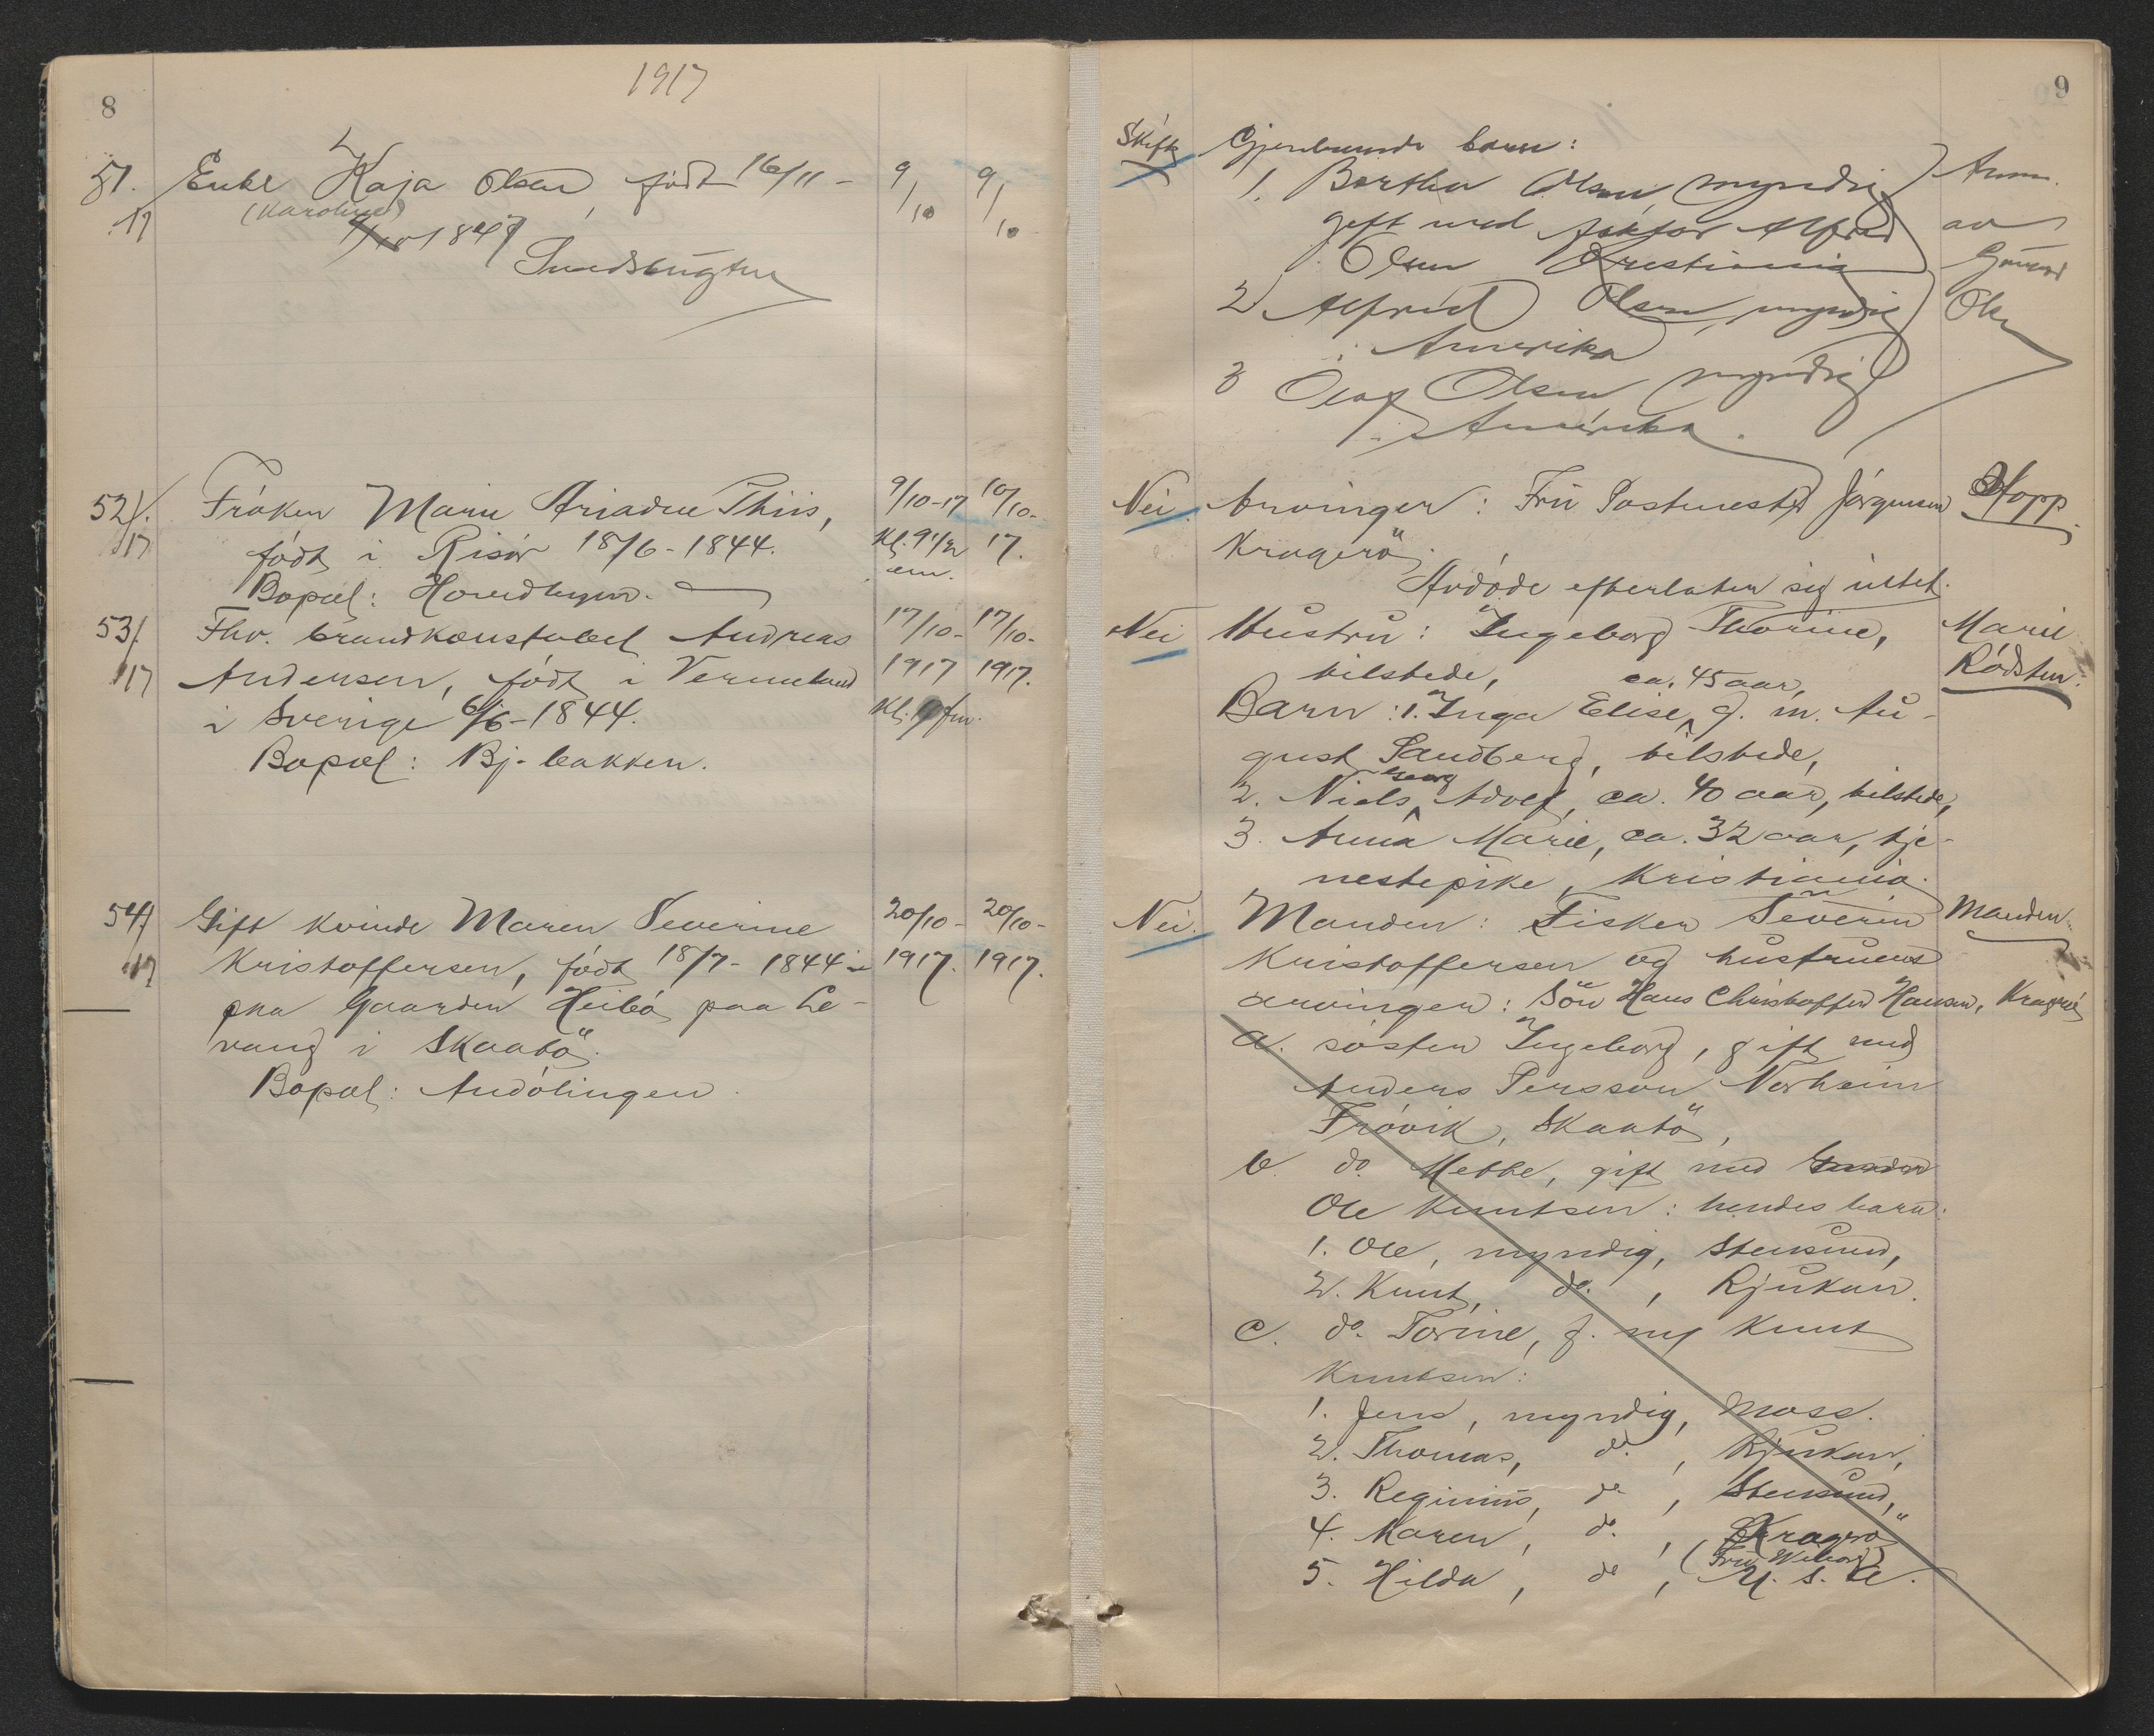 1917
8
51. Enke Kaja Olsen, født 16/11 - 9/10 9/10
17 (Karoline) 1847
Sundbugten
52/. Frøken Marie Ariadne Thiis, 9/10-17 10/10-
17 født i Risør 18/6-1844. Kl. 9 1/2 17.
Bopæl: Hovedbyen. em.
53/. Fhv. brandkonstabel Andreas 17/10- 17/10-
17 Andersen, født i Vermeland 1917 1917.
i Sverige 6/6-1844. Kl. fm.
Bopæl: Bj. bakken.
54/ Gift kvinde Maren Severine 20/10- 20/10-
17 Kristoffersen, født 18/7-1844 1917. 1917.
paa Gaarden Heibø paa Le-
vang i Skaatø.
Bopæl: Andølingen.
9
Skifte Gjenlevende barn: Anm.
1. Bertha Olsen, myndig av
gift med faktor Alfred
Olsen Kristiania
2 Alfred Olsen, myndig Ols
i Amerika
3 Olaf Olsen myndig
i Amerika.
Nei. Arvinger: Fru Postmester Jørgensen Hopp.
Kragerø.
Avdøde efterlater sig intet.
Nei Hustru: Ingeborg Thorine, Marie
bilstede, ca. 45 aar, Rødsten.
Barn: 1. Inga Elise, g. m. Au-
gust Sandberg, tilstede,
2. Niels Georg Adolf, ca. 40 aar, tilstede,
3. Anna Marie, ca. 32 aar, tje-
nestepike, Kristiania.
Nei. Manden: Fisker Severin Manden.
Kristoffersen og hustruens
arvinger: Søn Hans Christoffer Hansen, Kragerø
a. søster Ingeborg, gift med
Anders Persson Norheim
Frøvik, Skaatø,
b. do. Mette, gift med
Ole Knutsen: hendes barn:
1. Ole, myndig, Stensund,
2. Knut, do., Rjukan.
c. do. Torine, g. m/ Knut
Knutsen:
1. Jens, myndig, Moss.
2. Thomas, do., Rjukan,
3. Reginius, do, Stensund,
4. Karen, do., Kragerø
(Fru Wiborg)
5. Hilda, do, U. S. A.